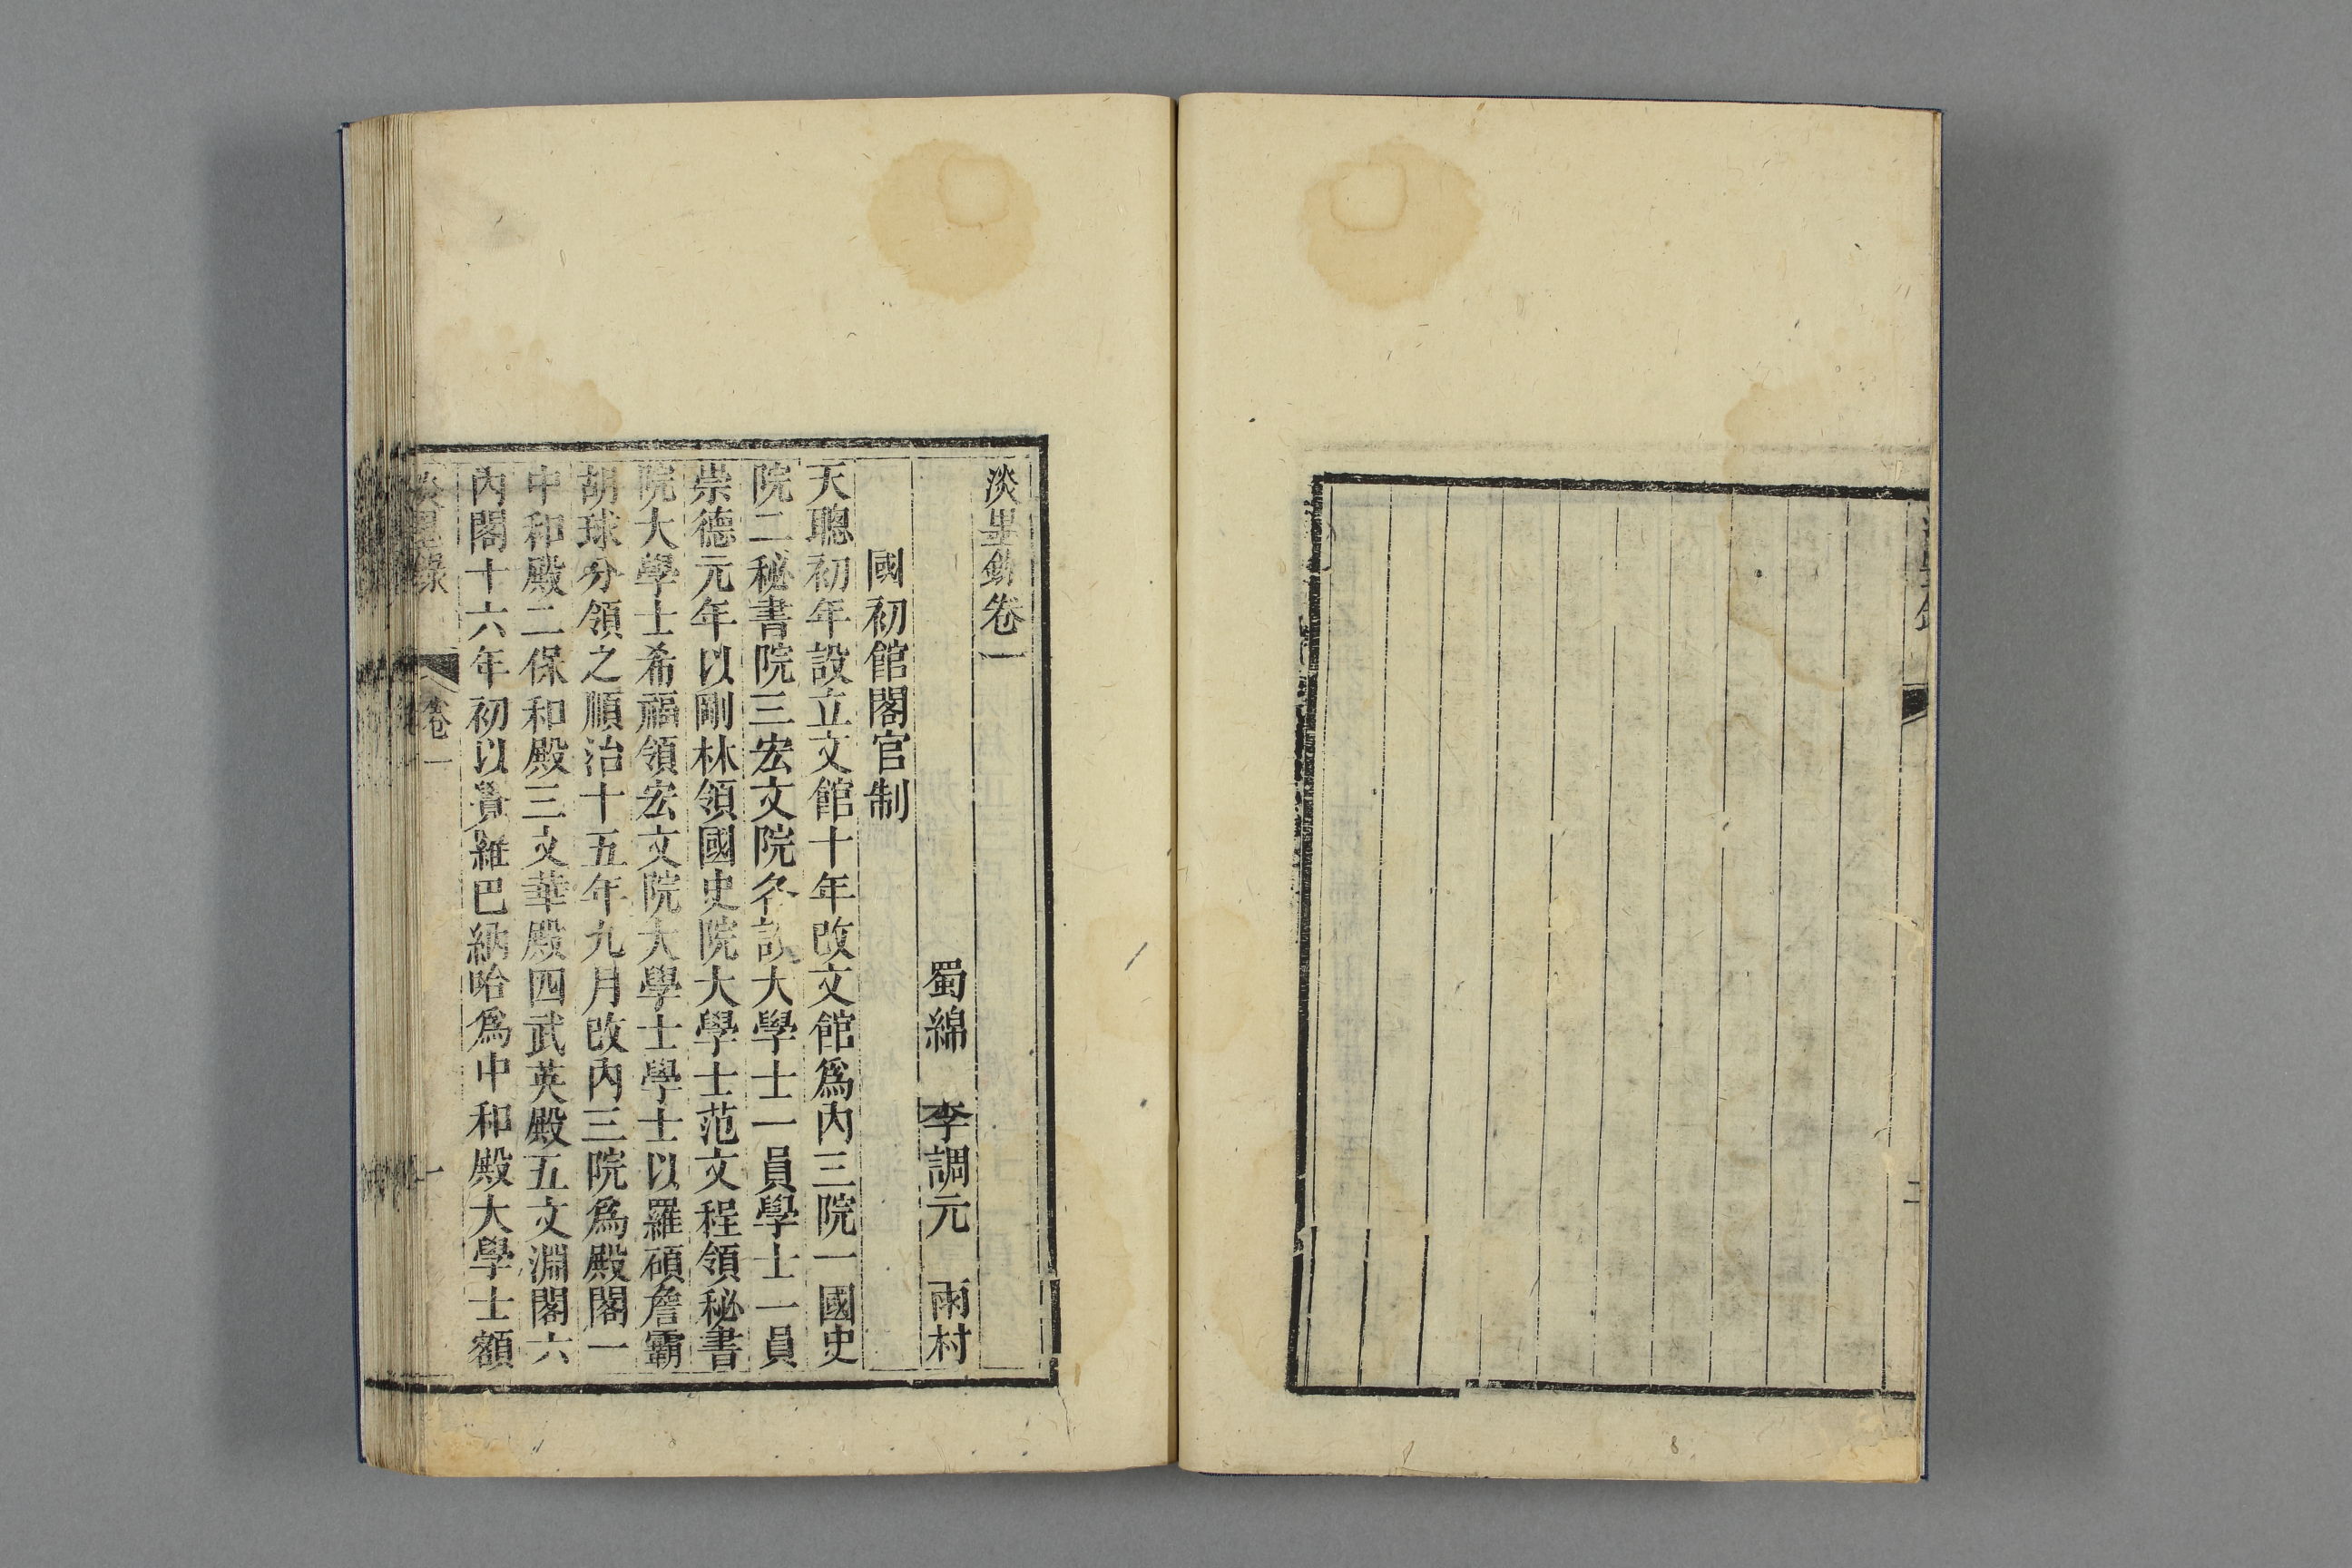 淡墨錄卷一
蜀綿 李調元 雨村
國初館閣官制
天聰初年設立文館十年改文館為內三院一國史
院二秘書院三宏文院各設大學士一員學士一員
崇德元年以剛林領國史院大學士范文程領秘書
院大學士希福領宏文院大學士學士以羅碩詹霸
胡球分領之順治十五年九月改內三院為殿閣一
中和殿二保和殿三文華殿四武英殿五文淵閣六
內閣十六年初以費雜巴納哈為中和殿大學士額
淡墨錄 卷一 一
二
8